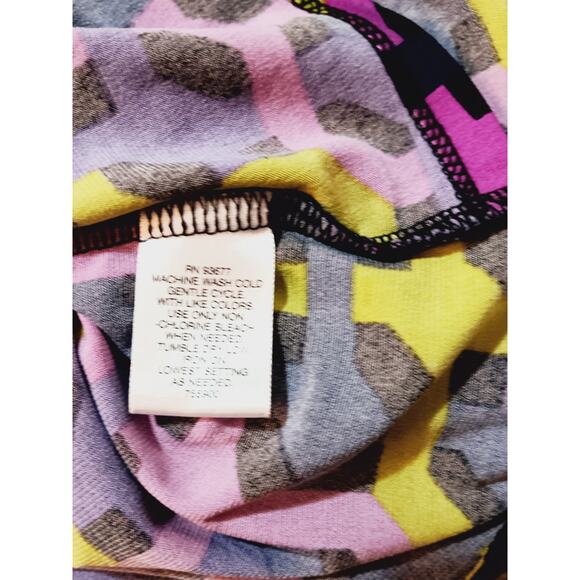 RN 93677
MACHINE WASH COLD
GENTLE CYCLE
WITH LIKE COLORS
USE ONLY NON
-CHLORINE BLEACH
WHEN NEEDED.
TUMBLE DRY LOW.
IRON ON
LOWEST SETTING
AS NEEDED.